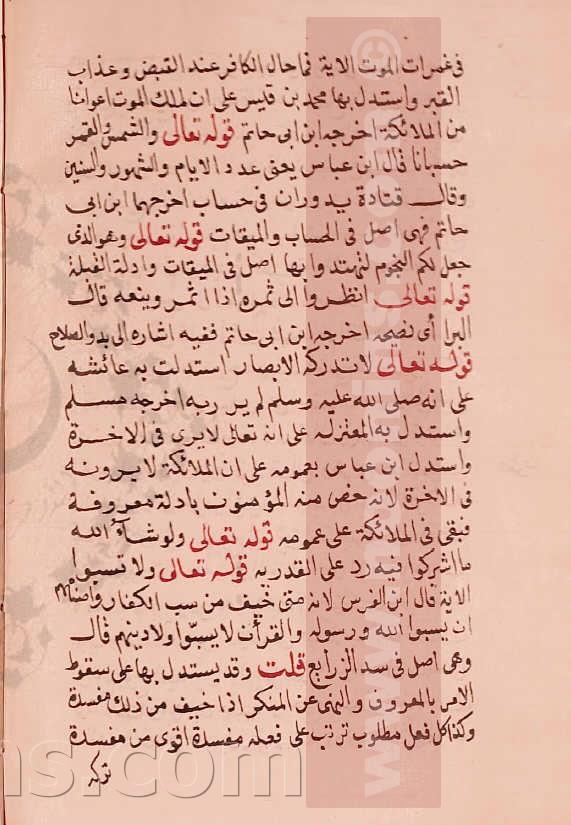 فى غمرات الموت الاية فما حال الكافر عند القبض وعذاب
القبر واستدل بها محمد بن قيس على ان لملك الموت اعوانا
من الملائكة اخرجه ابن ابى حاتم قوله تعالى والشمس والقمر
حسبانا قال ابن عباس يعنى عدد الايام والشهور والسنين
وقال قتادة يدوران فى حساب اخرجهما ابن ابى
حاتم فهى اصل فى الحساب والميقات قوله تعالى وهو الذى
جعل لكم النجوم لتهتدوا بها اصل فى الميقات وادلة القبلة
قوله تعالى انظروا الى ثمره اذا اثمر وينعه قال
البرا أى نضجه اخرجه ابن ابى حاتم ففيه اشاره الى بدو الصلاح
قوله تعالى لا تدركه الابصار استدلت به عائشه
على انه صلى الله عليه وسلم لم ير ربه اخرجه مسلم
واستدل به المعتزله على انه تعالى لا يرى فى الاخرة
واستدل ابن عباس بعمومه على ان الملائكة لا يرونه
فى الاخرة لانه خص منه المؤمنون بادلة معروفة
فبقى فى الملائكة على عمومه قوله تعالى ولو شاء الله
ما اشركوا فيه رد على القدريه قوله تعالى ولا تسبوا
الاية قال ابن الفرس لانه متى خيف من سب الكفار واصنامهم
ان يسبوا الله ورسوله والقرأن لا يسبوا ولا دينهم قال
وهى اصل فى سد الزرايع قلت وقد يستدل بها على سقوط
الامر بالمعروف والنهى عن المنكر اذا خيف من ذلك مفسدة
وكذا كل فعل مطلوب ترتب على فعله مفسدة اقوى من مفسدة
تركه